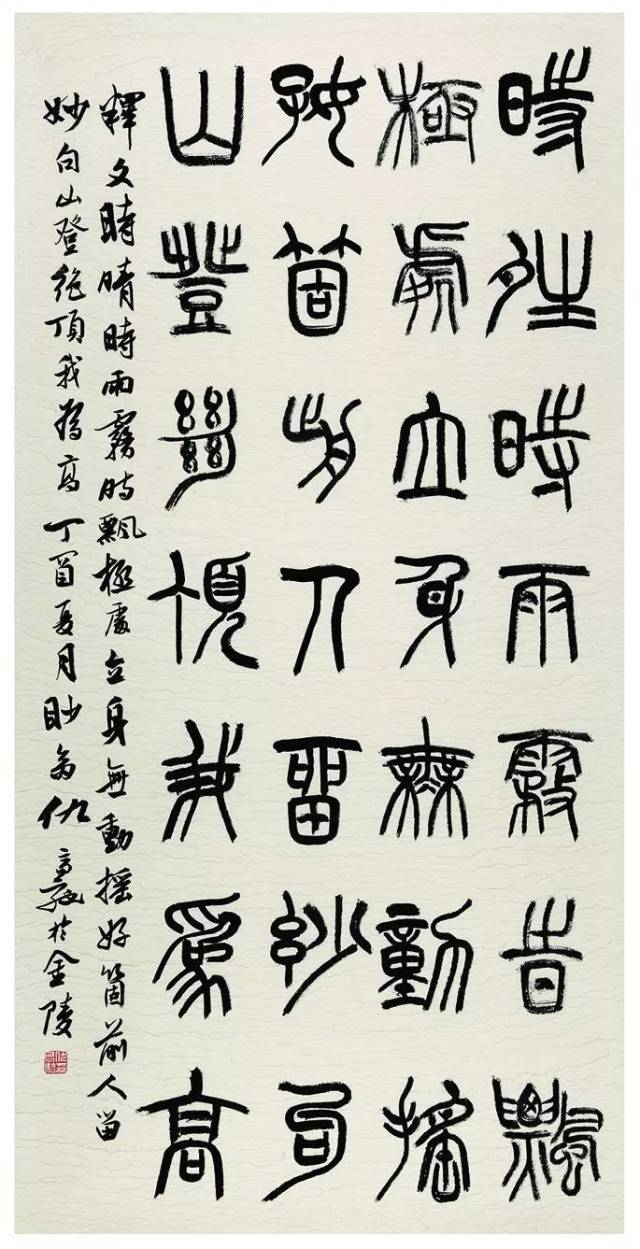 時晴時雨霧時飄
極處立身無動搖
好箇前人留妙句
山登絕頂我為高
釋文時晴時雨霧時飄極處立身無動搖好箇前人留
妙句山登絕頂我為高丁酉夏月眇翁仇高馳於金陵